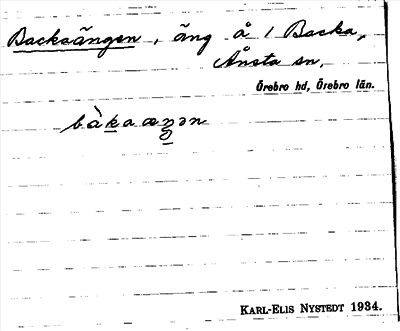 Backaängen, äng å 1 Backa,
Ånsta sn,
Örebro hd, Örebro län.
KARL-ELIS NYSTEDT 1934.